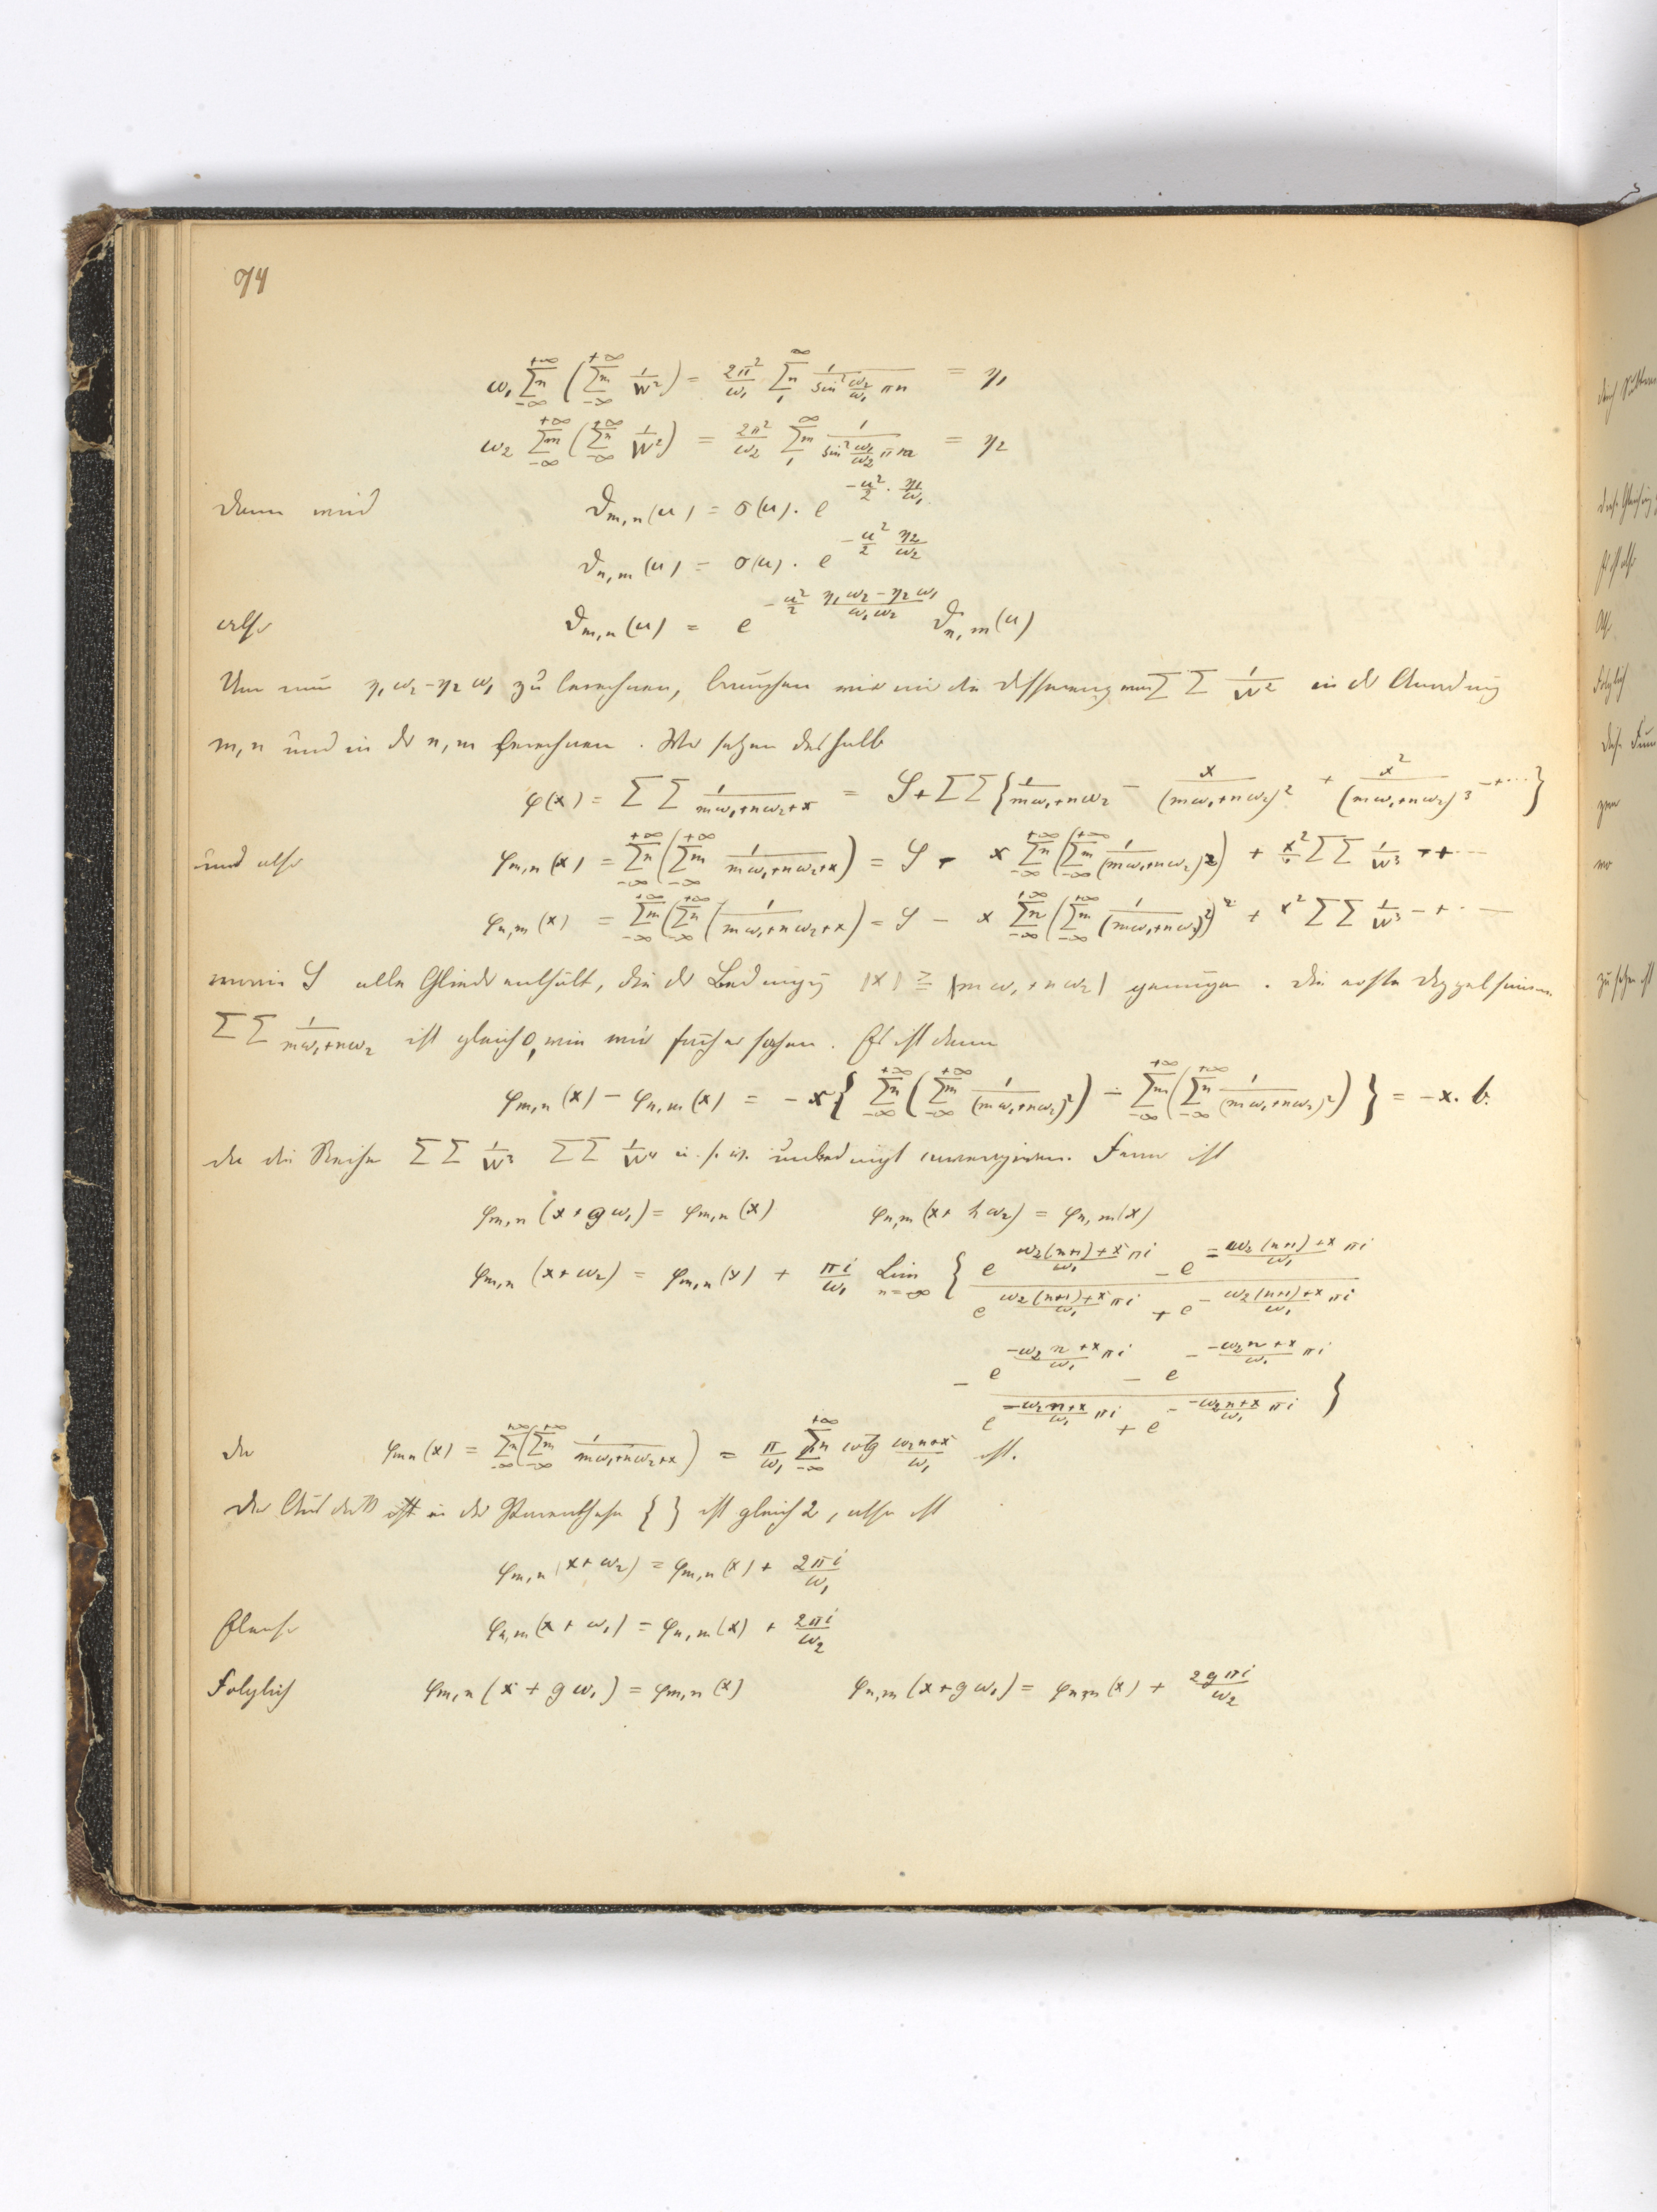 94
ω₁ Σn_{-∞}^{+∞} (Σm_{-∞}^{+∞} 1/W²) = 2π²/ω₁ Σn_1^∞ 1/(sin² ω₂/ω₁ πn) = η₁
ω₂ Σm_{-∞}^{+∞} (Σn_{-∞}^{+∞} 1/W²) = 2π²/ω₂ Σm_1^∞ 1/(sin² ω₁/ω₂ πm) = η₂
dann wird ϑ_{m,n}(u) = σ(u). e^{-u²/2 . η₁/ω₁}
ϑ_{n,m}(u) = σ(u) . e^{-u²/2 η₂/ω₂}
also ϑ_{m,n}(u) = e^{-u²/2 (η₁ω₂-η₂ω₁)/(ω₁ω₂)} ϑ_{n,m}(u)
Um nun η₁ω₂-η₂ω₁ zu berechnen, brauchen wir nur die Differenz von ΣΣ 1/W² in der Anordnung
m,n und in der n,m berechnen. Wir setzen deshalb
φ(x) = ΣΣ 1/(mω₁+nω₂+x) = S + ΣΣ{1/(mω₁+nω₂) - x/(mω₁+nω₂)² + x²/(mω₁+nω₂)³ -+···}
und also φ_{m,n}(x) = Σn_{-∞}^{+∞}(Σm_{-∞}^{+∞} 1/(mω₁+nω₂+x)) = S - x Σn_{-∞}^{+∞}(Σm_{-∞}^{+∞} 1/(mω₁+nω₂)²) + x² ΣΣ 1/W³ -+···
φ_{n,m}(x) = Σm_{-∞}^{+∞}(Σn_{-∞}^{+∞} (1/(mω₁+nω₂+x)) = S - x Σn_{-∞}^{+∞}(Σm_{-∞}^{+∞} 1/(mω₁+nω₂)²) + x² ΣΣ 1/W³ -+···
worin S alle Glieder enthält, die der Bedingung |x| ≧ |mω₁+nω₂| genügen. Die erste Doppelsumme
ΣΣ 1/(mω₁+nω₂) ist gleich 0, wie wir früher sahen. Es ist dann
φ_{m,n}(x) - φ_{n,m}(x) = -x{Σn_{-∞}^{+∞}(Σm_{-∞}^{+∞} 1/(mω₁+nω₂)²) - Σm_{-∞}^{+∞}(Σn_{-∞}^{+∞} 1/(mω₁+nω₂)²)} = -x. b.
da die Reihen ΣΣ 1/W³ ΣΣ 1/W⁴ u. s. w. unbedingt convergieren. Ferner ist
φ_{m,n}(x+gω₁) = φ_{m,n}(x) φ_{n,m}(x+hω₂) = φ_{n,m}(x)
φ_{m,n}(x+ω₂) = φ_{m,n}(x) + πi/ω₁ Lim_{n=∞} {(e^{(ω₂(n+1)+x)/ω₁ πi} - e^{-(ω₂(n+1)+x)/ω₁ πi})/(e^{(ω₂(n+1)+x)/ω₁ πi} + e^{-(ω₂(n+1)+x)/ω₁ πi})
- (e^{(-ω₂n+x)/ω₁ πi} - e^{-(-ω₂n+x)/ω₁ πi})/(e^{(-ω₂n+x)/ω₁ πi} + e^{-(-ω₂n+x)/ω₁ πi})}
da φ_{mn}(x) = Σn_{-∞}^{+∞}(Σm_{-∞}^{+∞} 1/(mω₁+nω₂+x)) = π/ω₁ Σn_{-∞}^{+∞} cotg (ω₂n+x)/ω₁ ist.
Der Ausdruck in der Parenthese { } ist gleich 2, also ist
φ_{m,n}(x+ω₂) = φ_{m,n}(x) + 2πi/ω₁
Ebenso φ_{n,m}(x+ω₁) = φ_{n,m}(x) + 2πi/ω₂
Folglich φ_{m,n}(x+gω₁) = φ_{m,n}(x) φ_{n,m}(x+gω₁) = φ_{n,m}(x) + 2gπi/ω₂